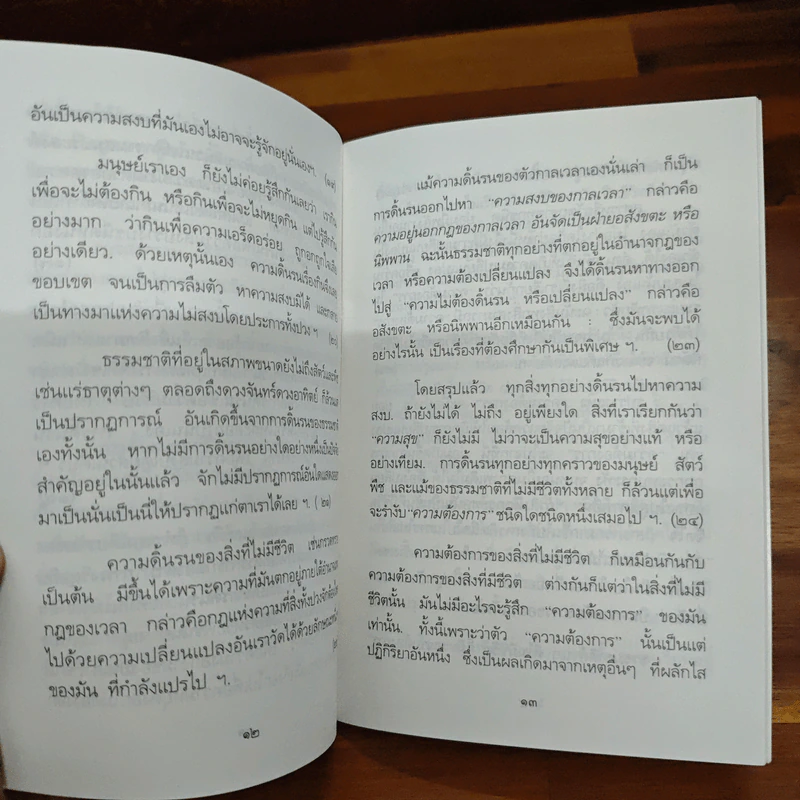 อันเป็นความสงบที่มันเองไม่อาจจะรู้จักอยู่นั่นเองฯ. (๑๙)
มนุษย์เราเอง ก็ยังไม่ค่อยรู้สึกกันเลยว่า เรากิน
เพื่อจะไม่ต้องกิน หรือกินเพื่อจะไม่หยุดกิน แต่ไปรู้สึกกัน
อย่างมาก ว่ากินเพื่อความเอร็ดอร่อย ถูกอกถูกใจ
อย่างเดียว. ด้วยเหตุนั้นเอง ความดิ้นรนเรื่องกินจึง
ขอบเขต จนเป็นการลืมตัว หาความสงบมิได้
เป็นทางมาแห่งความไม่สงบโดยประการทั้งปวง ฯ. (๒๐)
ธรรมชาติที่อยู่ในสภาพขนาดยังไม่ถึงสัตว์และพืช
เช่นแร่ธาตุต่างๆ ตลอดถึงดวงจันทร์ดวงอาทิตย์ ก็ล้วน
เป็นปรากฏการณ์ อันเกิดขึ้นจากการดิ้นรนของธรรมชาติ
เองทั้งนั้น หากไม่มีการดิ้นรนอย่างใดอย่างหนึ่งเป็น
สำคัญอยู่ในนั้นแล้ว จักไม่มีปรากฏการณ์อันใด
มาเป็นนั่นเป็นนี่ให้ปรากฏแก่ตาเราได้เลย ฯ. (๒๑)
ความดิ้นรนของสิ่งที่ไม่มีชีวิต เช่น
เป็นต้น มีขึ้นได้เพราะความที่มันตกอยู่ภายใต้อำนาจ
กฎของเวลา กล่าวคือกฎแห่งความที่สิ่งทั้งปวงจัก
ไปด้วยความเปลี่ยนแปลงอันเราวัดได้ด้วยลักษณะ
ของมัน ที่กำลังแปรไป ฯ.
๑๒
แม้ความดิ้นรนของตัวกาลเวลาเองนั่นเล่า ก็เป็น
การดิ้นรนออกไปหา “ความสงบของกาลเวลา” กล่าวคือ
ความอยู่นอกกฎของกาลเวลา อันจัดเป็นฝ่ายอสังขตะ หรือ
นิพพาน ฉะนั้นธรรมชาติทุกอย่างที่ตกอยู่ในอำนาจกฎของ
เวลา หรือความต้องเปลี่ยนแปลง จึงได้ดิ้นรนหาทางออก
ไปสู่ “ความไม่ต้องดิ้นรน หรือเปลี่ยนแปลง” กล่าวคือ
อสังขตะ หรือนิพพานอีกเหมือนกัน : ซึ่งมันจะพบได้
อย่างไรนั้น เป็นเรื่องที่ต้องศึกษากันเป็นพิเศษ ฯ. (๒๓)
โดยสรุปแล้ว ทุกสิ่งทุกอย่างดิ้นรนไปหาความ
สงบ. ถ้ายังไม่ได้ ไม่ถึง อยู่เพียงใด สิ่งที่เราเรียกกันว่า
“ความสุข” ก็ยังไม่มี ไม่ว่าจะเป็นความสุขอย่างแท้ หรือ
อย่างเทียม. การดิ้นรนทุกอย่างทุกคราวของมนุษย์ สัตว์
พืช และแม้ของธรรมชาติที่ไม่มีชีวิตทั้งหลาย ก็ล้วนแต่เพื่อ
จะรำงับ“ความต้องการ” ชนิดใดชนิดหนึ่งเสมอไป ฯ. (๒๔)
ความต้องการของสิ่งที่ไม่มีชีวิต ก็เหมือนกันกับ
ความต้องการของสิ่งที่มีชีวิต ต่างกันก็แต่ว่าในสิ่งที่ไม่มี
ชีวิตนั้น มันไม่มีอะไรจะรู้สึก “ความต้องการ” ของมัน
เท่านั้น. ทั้งนี้เพราะว่าตัว “ความต้องการ” นั้นเป็นแต่
ปฏิกิริยาอันหนึ่ง ซึ่งเป็นผลเกิดมาจากเหตุอื่นๆ ที่ผลักไส
๑๓